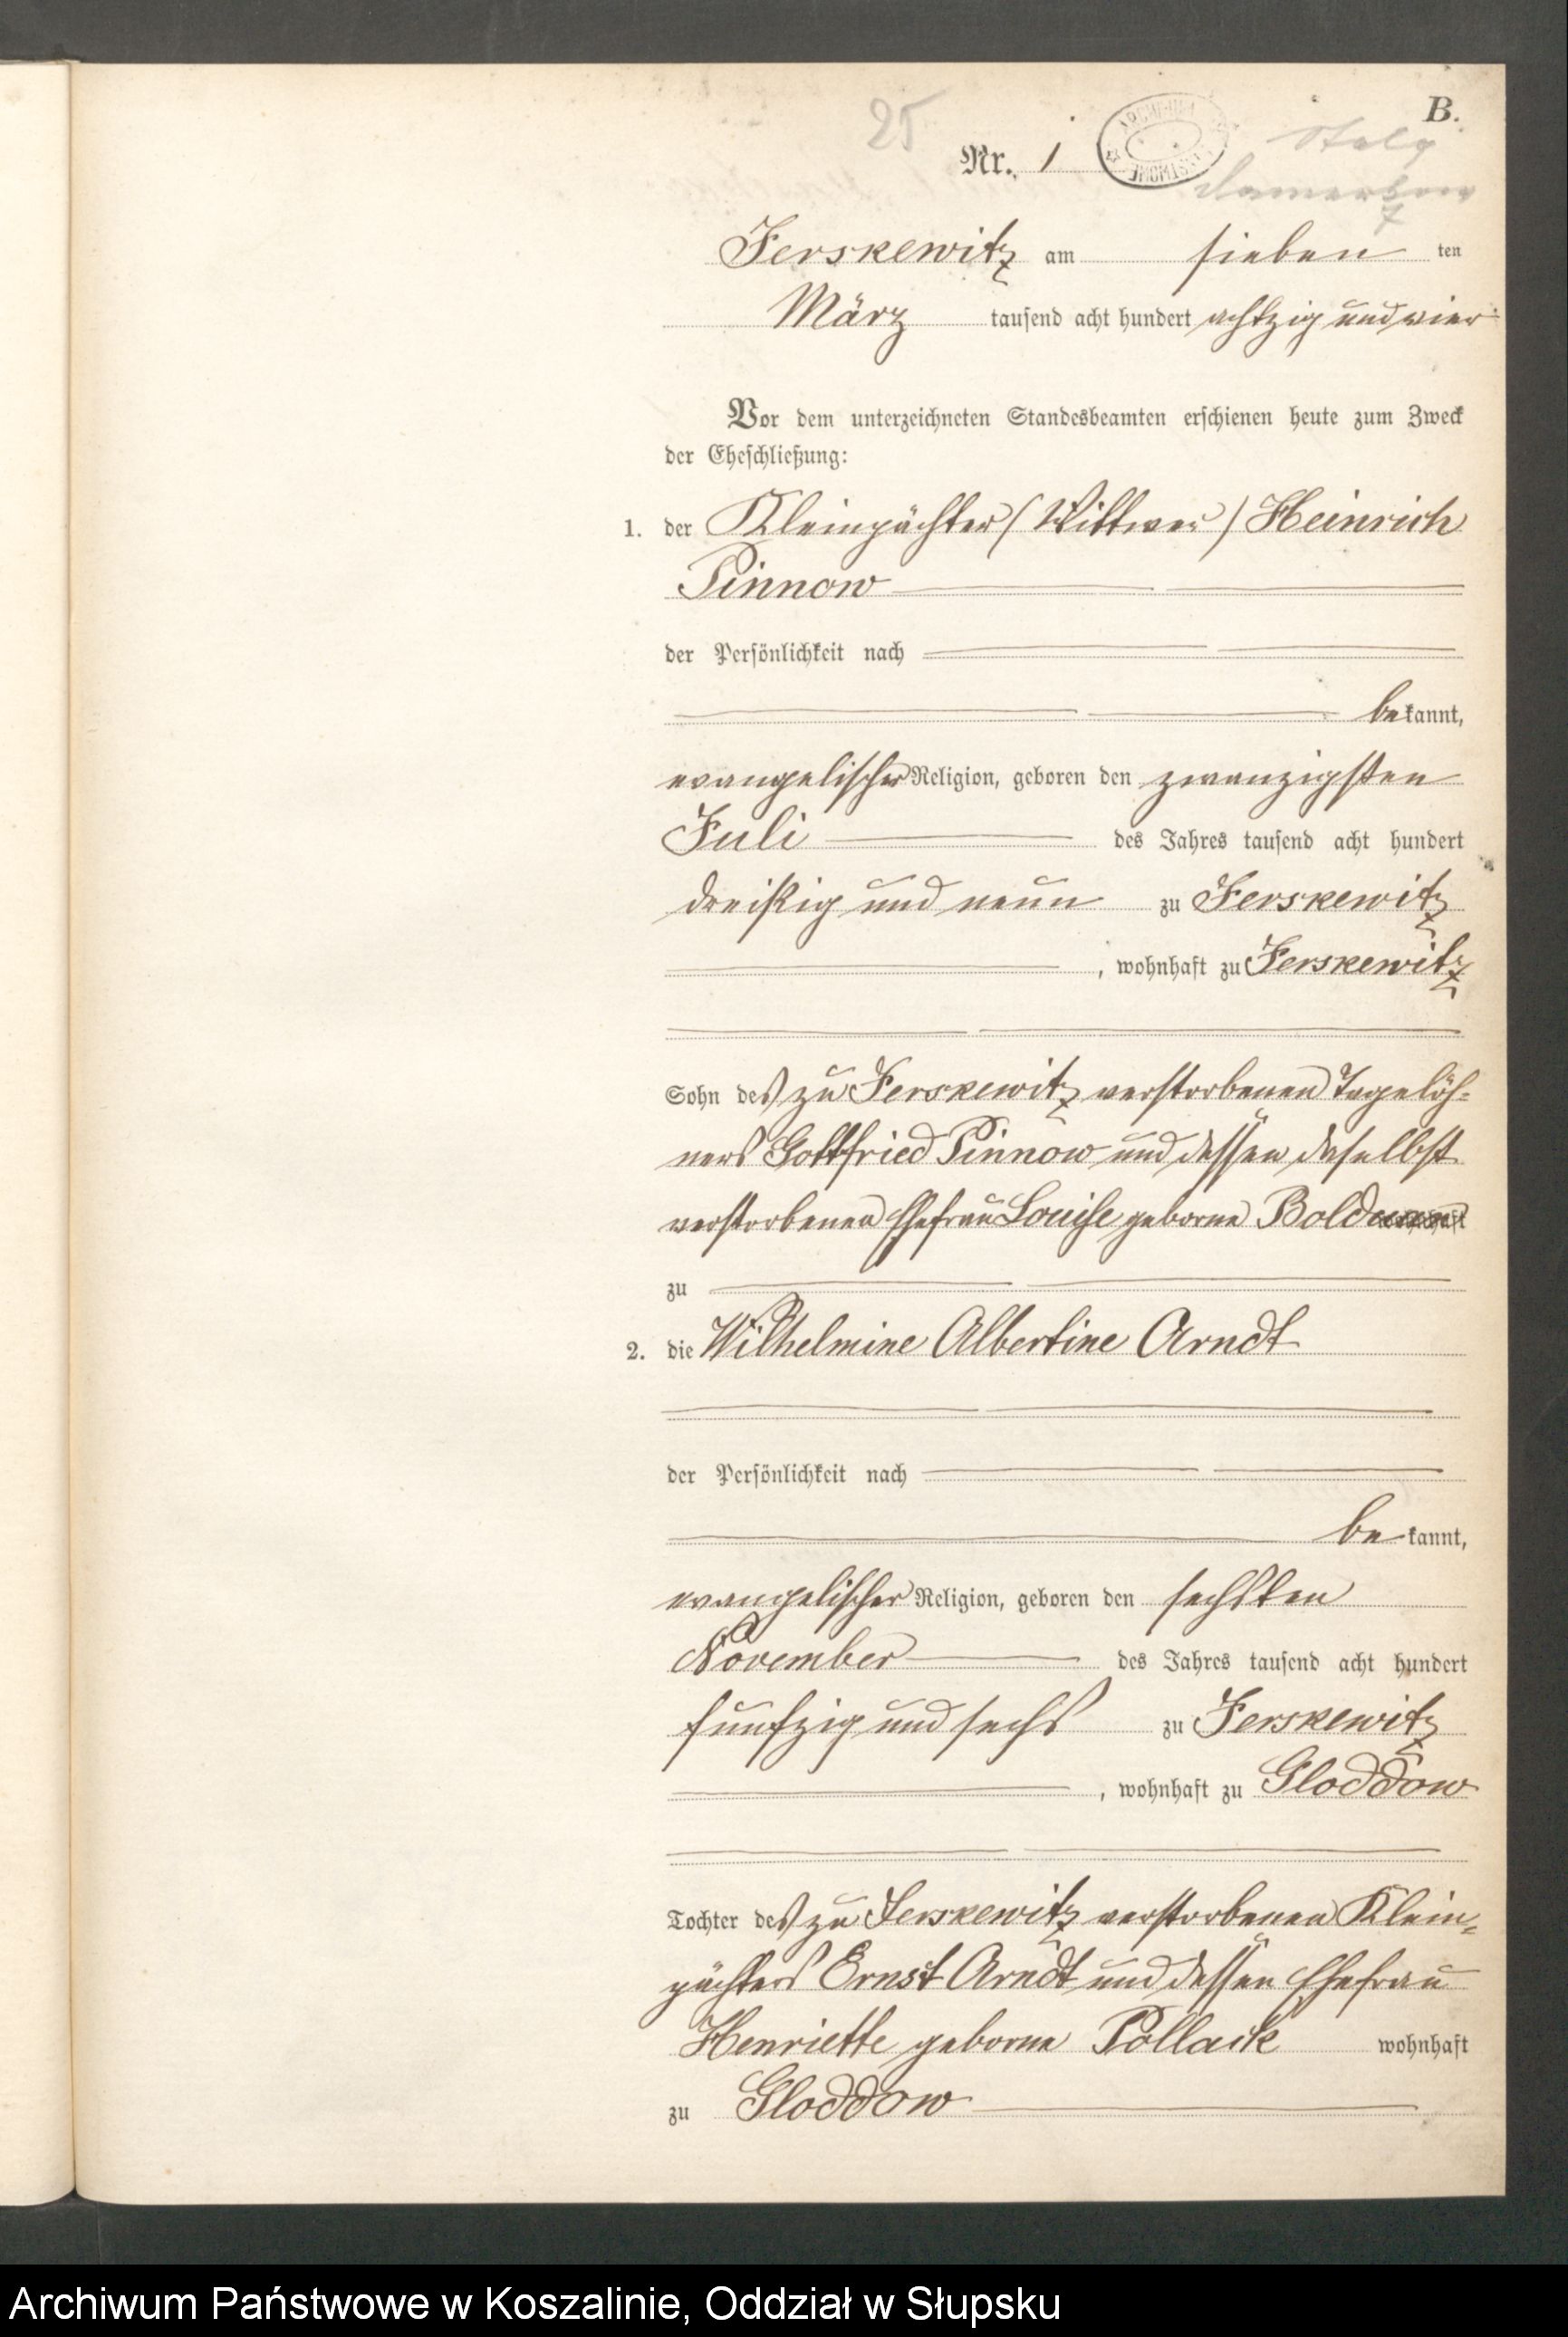 B.
25
Nr. 1
Stolp
Jerskewitz am sieben ten
März tausend acht hundert achtzig und vier
Vor dem unterzeichneten Standesbeamten erschienen heute zum Zweck
der Eheschließung:
1. der Kleinpächter (Wittwer) Heinrich
Pinnow
der Persönlichkeit nach
bekannt,
evangelischer Religion, geboren den zwanzigsten
Juli des Jahres tausend acht hundert
dreißig und neun zu Jerskewitz
, wohnhaft zu Jerskewitz
Sohn des zu Jerskewitz verstorbenen Tagelöh-
ners Gottfried Pinnow und dessen daselbst
verstorbenen Ehefrau Louise geborne
zu
2. die Wilhelmine Albertine Arndt
der Persönlichkeit nach
bekannt,
evangelischer Religion, geboren den sechsten
November des Jahres tausend acht hundert
fünfzig und sechs zu Jerskewitz
, wohnhaft zu Gloddow
Tochter des zu Jerskewitz verstorbenen Klein-
pächters Ernst Arndt und dessen Ehefrau
Henriette geborne Pollack wohnhaft
zu Gloddow
Archiwum Państwowe w Koszalinie, Oddział w Słupsku